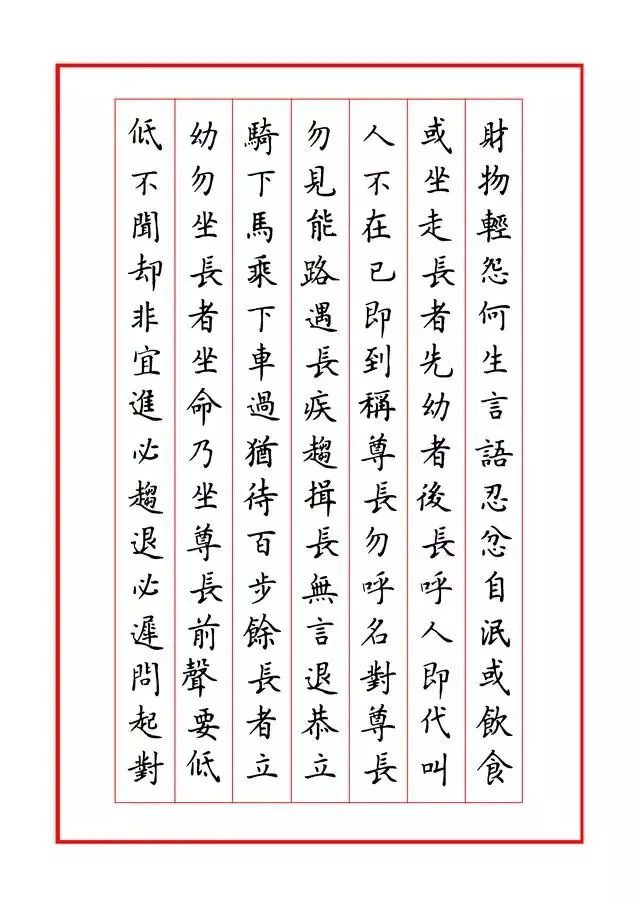 財物輕怨何生言語忍忿自泯或飲食
或坐走長者先幼者後長呼人即代叫
人不在已即到稱尊長勿呼名對尊長
勿見能路遇長疾趨揖長無言退恭立
騎下馬乘下車過猶待百步餘長者立
幼勿坐長者坐命乃坐尊長前聲要低
低不聞却非宜進必趨退必遲問起對